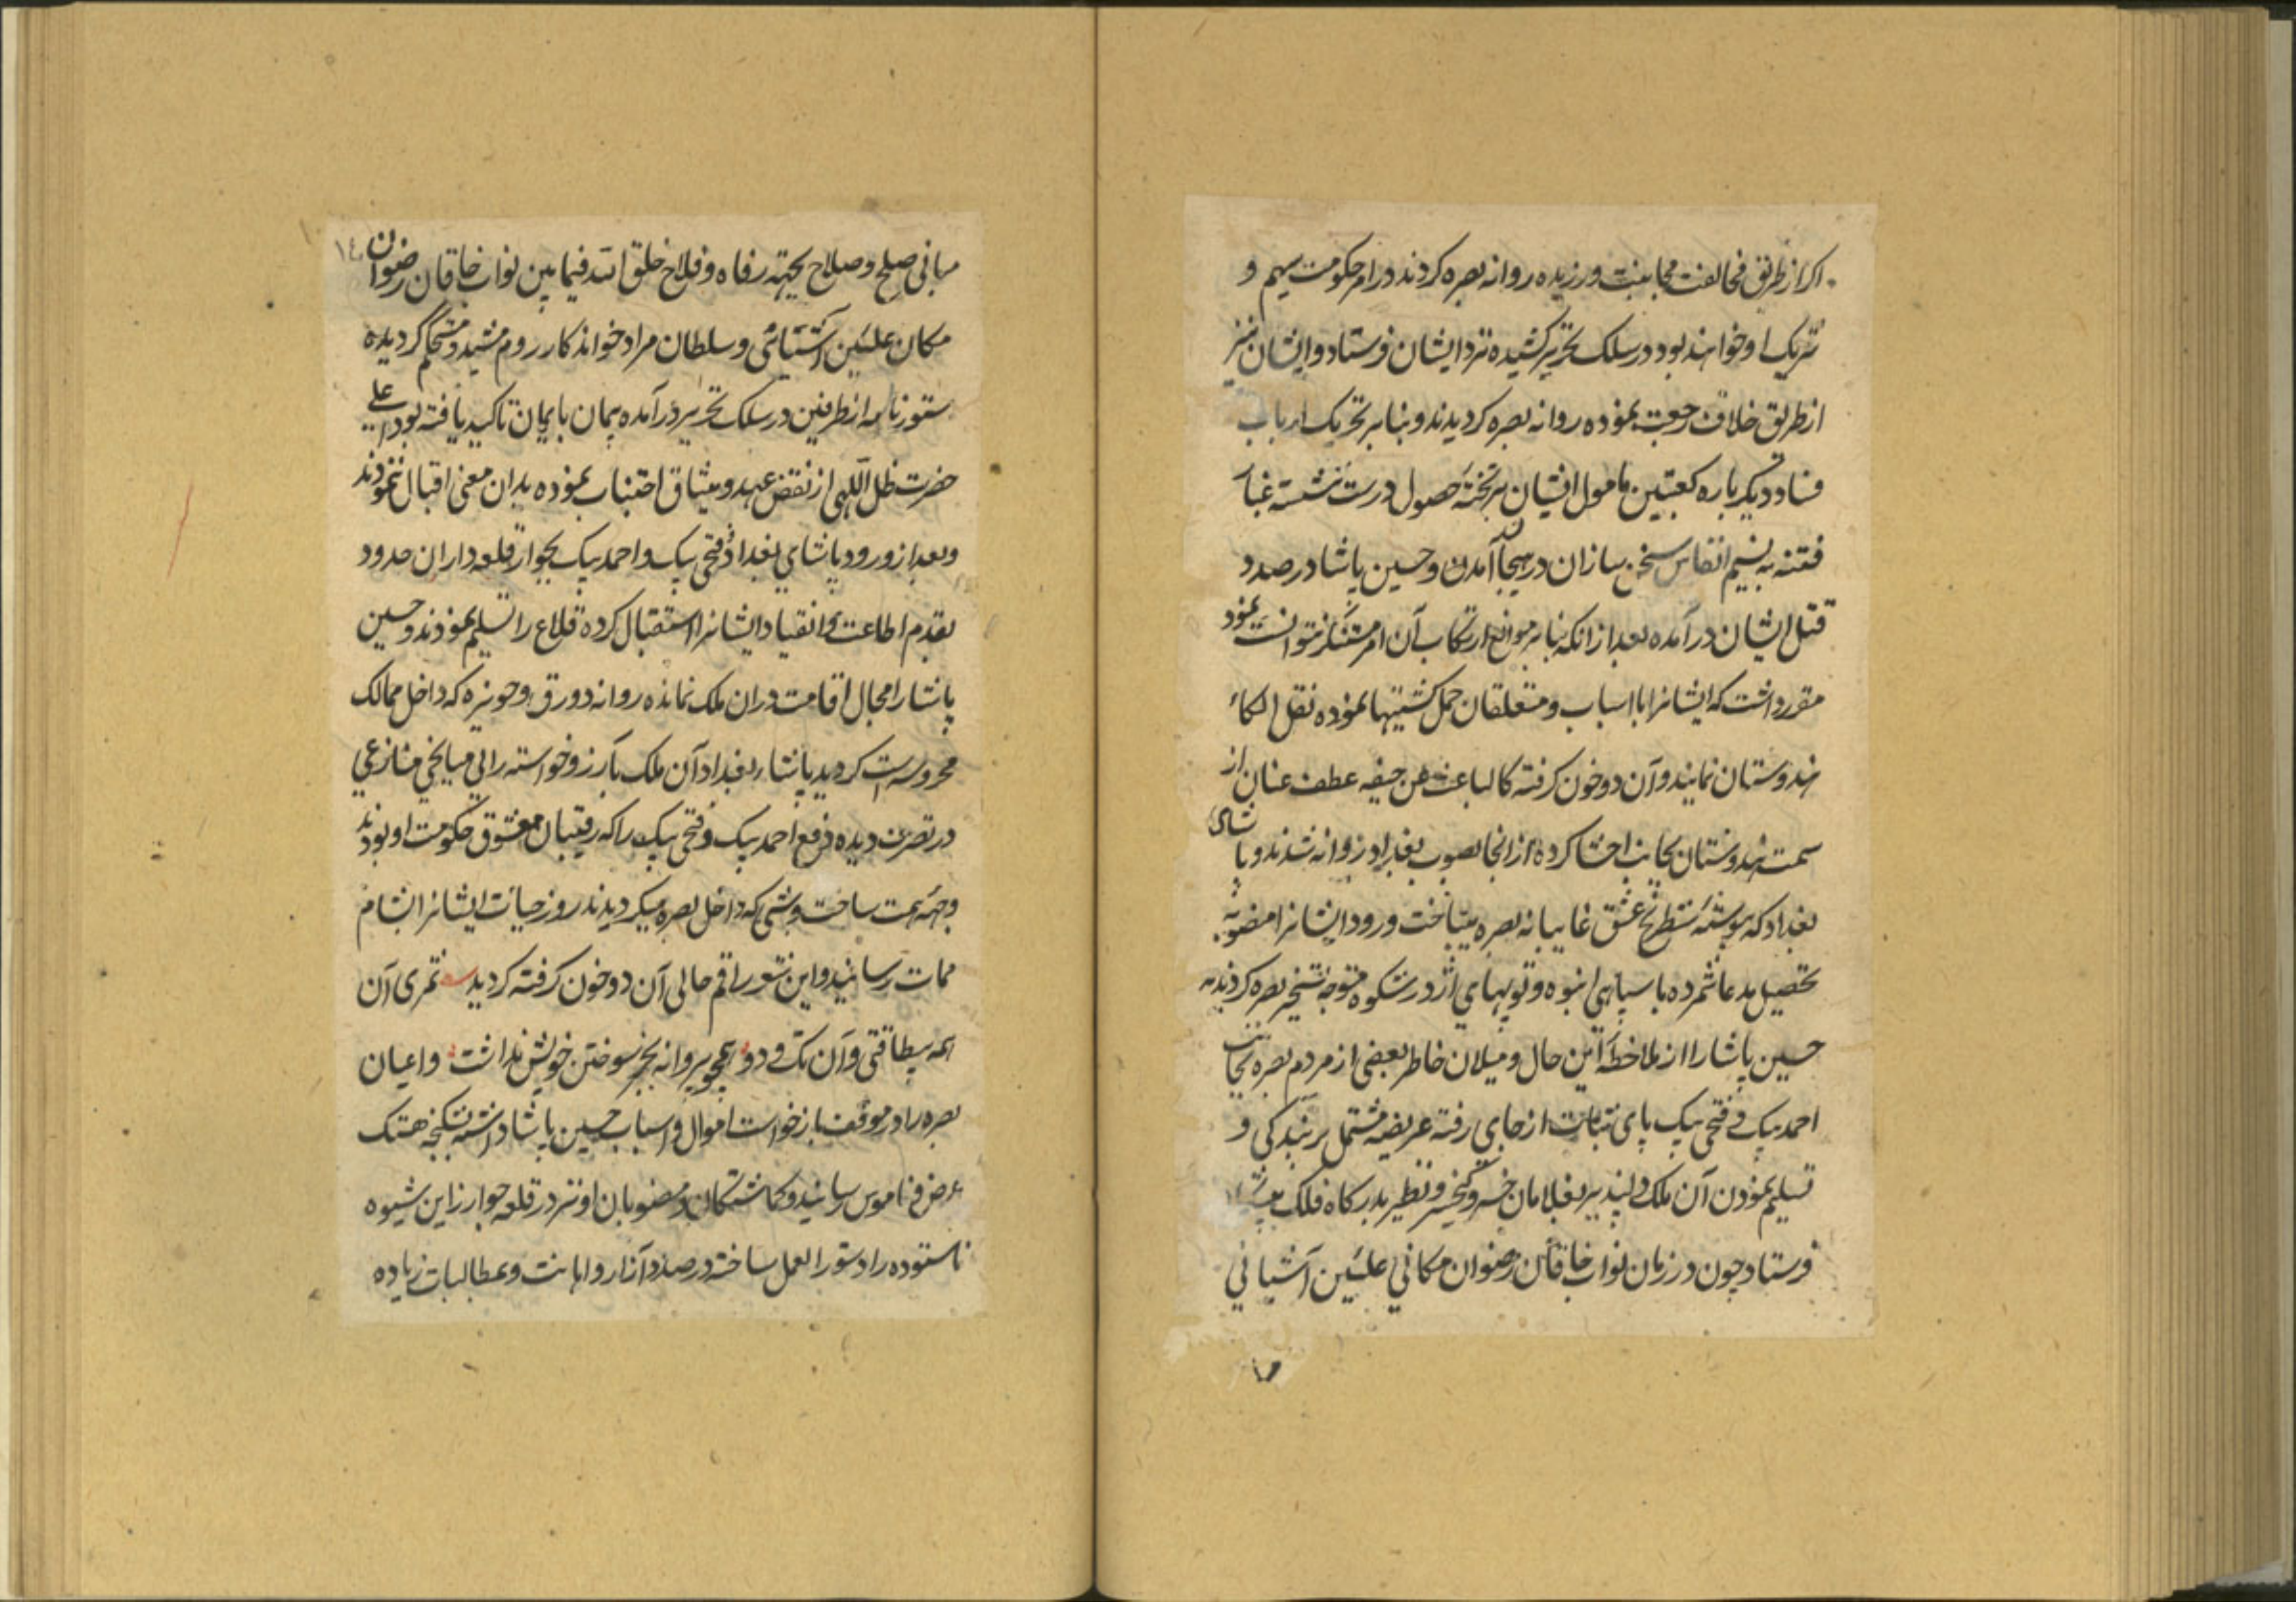 اکر از طریق مخالفت مجانبت ورزیده روانه بصره کردند در امر حکومت سهیم و
شریک او خواهند بود در سلک تحریر کشیده نزد ایشان فرستاد و ایشان نیز
از طریق خلاف رجعت نموده روانه بصره کردیدند و بنابر تحریک ارباب
فساد دیکر باره کعبتین مامول ایشان بر تخته حصول درست ننشسته غبار
فتنه به نسیم انفاس سخن سازان در هیجان آمدن و حسین پاشا در صدد
قتل ایشان در آمده بعد از انکه بنابر موانع ارتکاب آن امر نتوانست نمود
مقرر داشت که ایشانرا با اسباب و متعلقان حمل کشتیها نموده نقل الکاء
هندوستان نمایند و آن دو خون کرفته کالباعث عن حیفه عطف عنان از
سمت هندوستان بجانب احشا کرده از انجا بصوب بغداد روانه شدند و پاشای
بغداد که پیوسته شطرنج عشق غایبانه بصره میباخت ورود ایشانرا منصوبه
تحصیل مدعا شمرده با سپاهی انبوه و توپهای اژدر شکوه متوجه تسخیر بصره کردیدند
حسین پاشا را از ملاحظه این حال و میلان خاطر بعضی از مردم بصره بجانب
احمد بیک و فتحی بیک پای ثبات از جای رفته عریضه مشتمل بر بندکی و
تسلیم نمودن آن ملک دلپذیر بغلامان خسرو کیخسرو نظیر بدرکاه فلک
فرستاد چون در زمان نواب خاقان رضوان مکانی علیین آشیانی
مبانی صلح و صلاح بجهته رفاه و فلاح خلق الله فیمابین نواب خاقان رضوان
مکان علیین آشیانی و سلطان مراد خواندکار روم مشید و مستحکم گردیده
ستور نامه از طرفین در سلک تحریر در آمده پیمان بایمان تاکید یافته بود اعلی
حضرت ظل اللهی از نقض عهد و میثاق اجتناب نموده بدان معنی اقبال ننمودند
و بعد از ورود پاشای بغداد و فتحی بیک و احمد بیک بجوار قلعه داران حدود
بقدم اطاعت و انقیاد ایشانرا استقبال کرده قلاع را تسلیم نمودند و حسین
پاشا را مجال اقامت در ان ملک نمانده روانه دورق و حویزه که داخل ممالک
محروسه است کردید پاشاء بغداد آن ملک بآرزو خواسته را بی میانجی منازعی
در تصرف دیده دفع احمد بیک و فتحی بیک را که رقیبان معشوق حکومت او بودند
وجهه همت ساخت و شبی که داخل بصره میکردیدند روز حیات ایشانرا بشام
ممات رسانید و این شعر راقم حالی آن دو خون کرفته کردید ثمری آن
همه بیطاقتی و آن تک و دو همچو پروانه بجز سوختن خویش نداشت و اعیان
بصره را در موقف بازخواست اموال و اسباب حسین پاشا داشته بشکنجه هتک
عرض و ناموس رسانید و کماشتکان و منصوبان او نیز در قلعه جوارز این شیوه
ناستوده را دستور العمل ساخته در صدد آزار و اهانت و مطالبات زیاده